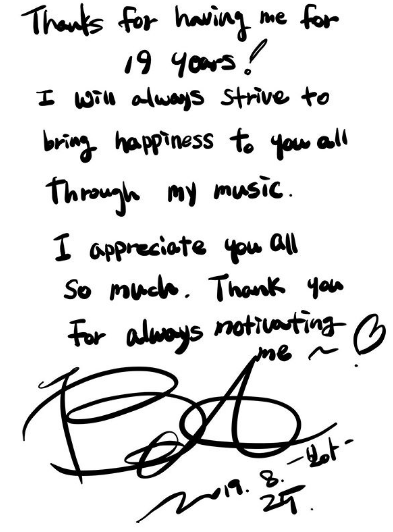 Thanks for having me for
19 years!
I will always strive to
bring happiness to you all
through my music.
I appreciate you all
so much. Thank you
for always motivating
me ~ ♡
BoA
-보아-
2019. 8.
25.